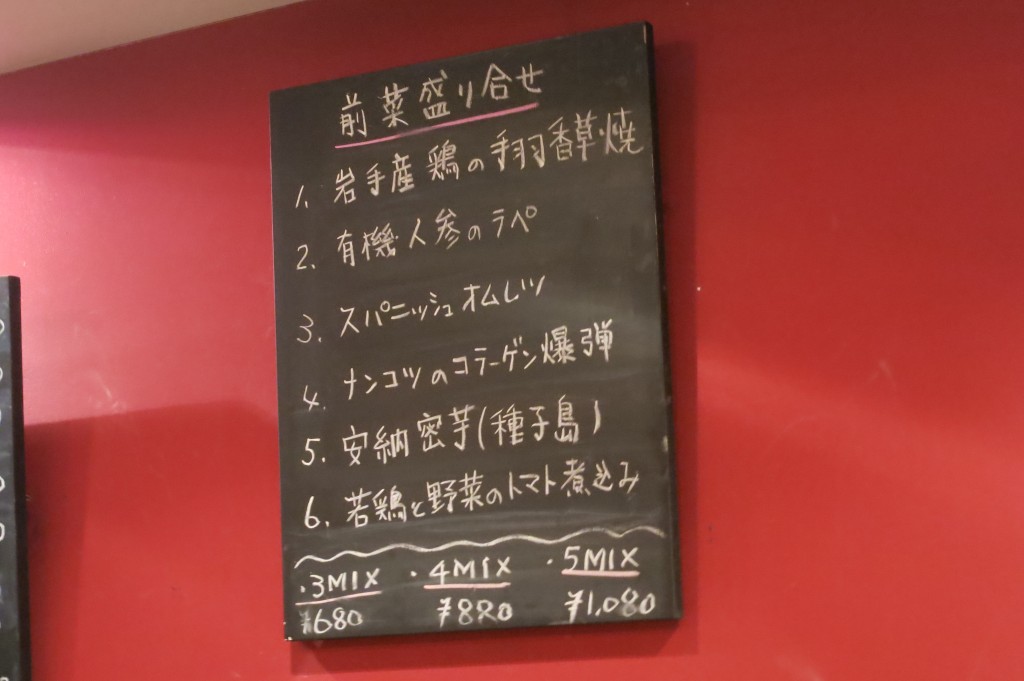 前菜盛り合せ
1. 岩手産鶏の手羽香草焼
2. 有機人参のラペ
3. スパニッシュオムレツ
4. ナンコツのコラーゲン爆弾
5. 安納密芋(種子島)
6. 若鶏と野菜のトマト煮込み
・3MIX ・4MIX ・5MIX
¥680 ¥820 ¥1,080